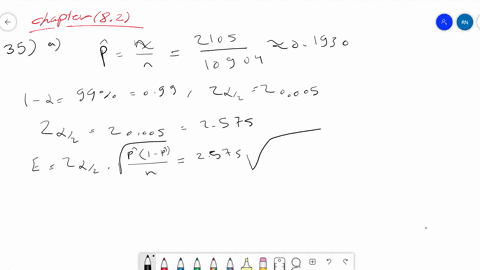 chapter(8.2)
35) a) p̂ = x/n = 2105/10904 ≈ 0.1930
1-α = 99% = 0.99, Zα/2 = Z0.005
Zα/2 = Z0.005 = 2.575
E = Zα/2 · √(p̂(1-p̂)/n) = 2.575 √
RN